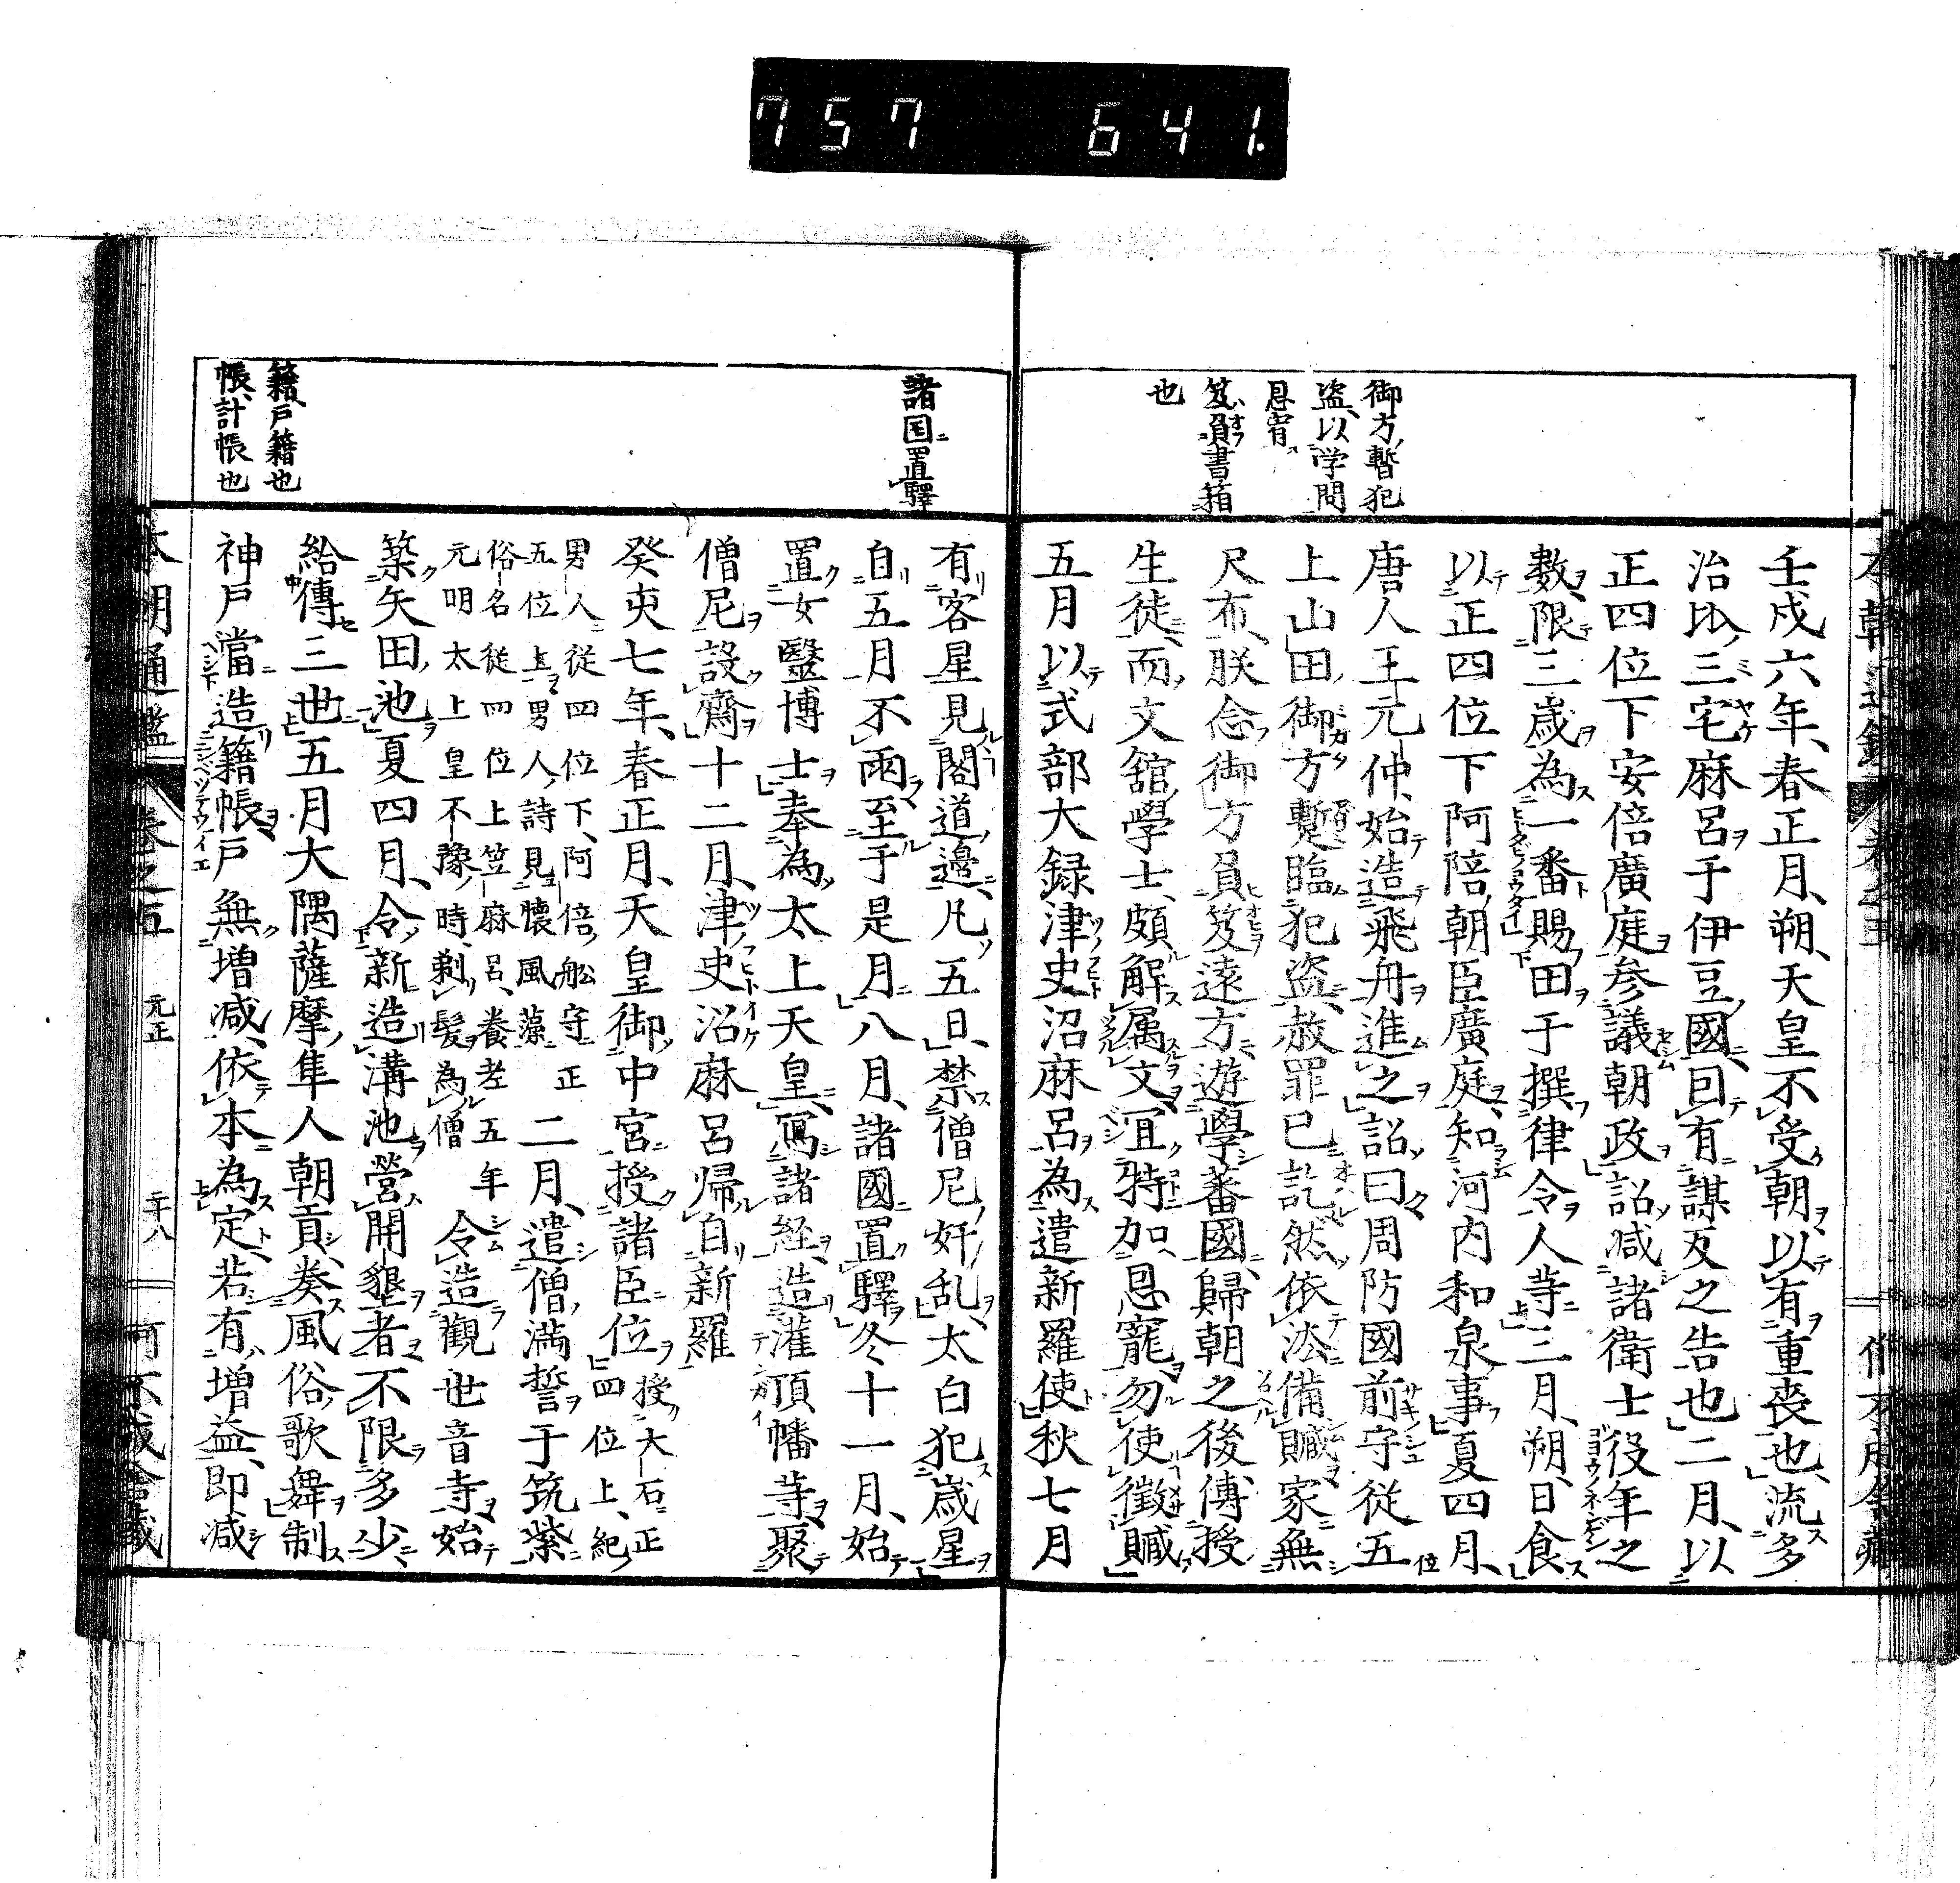 757 641.
御方暫犯
盗以学問
恩宥
笈負書箱
也
壬戌六年、春正月、朔、天皇不受朝以有重喪也、流多
治比三宅麻呂于伊豆國、囙有謀反之告也二月、以
正四位下安倍廣庭参議朝政詔减諸衛士役年之
數、限三歳為一番賜田于撰律令人等三月、朔、日食
以正四位下阿陪朝臣廣庭知河内和泉事夏四月、
唐人王元仲、始造飛舟進之詔曰周防國前守従五位
上山田御方蹔臨犯盗、赦罪已訖然依法備贓家無
尺布、朕念御方負笈遠方遊學蕃國、歸朝之後傳授
生徒、而文舘學士、頗解属文、冝特加恩寵勿使徴贓
五月以式部大録津史沼麻呂為遣新羅使秋七月
諸国置驛
有客星見閣道邉、凡五日、禁僧尼奸乱、太白犯歳星
自五月不雨至于是月八月、諸國置驛冬十一月、始
置女毉博士奉為太上天皇、寫諸経、造灌頂幡等聚
僧尼設齋十二月、津史沼麻呂帰自新羅
癸亥七年、春正月、天皇御中宮授諸臣位授大石正四位上、紀
男人従四位下、阿倍船守正
五位上男人詩見懐風藻二月、遣僧満誓于筑紫
俗名従四位上笠麻呂、養老五年
元明太上皇不豫時剃髪為僧令造觀世音寺始
築矢田池夏四月、令新造溝池營開墾者不限多少
給傳三世五月大隅薩摩隼人朝貢、奏風俗歌舞制
神戸當造籍帳戸無増减、依本為定若有増益、即减
籍戸籍也
帳計帳也
本朝通鑑 卷之五 元正 二十八